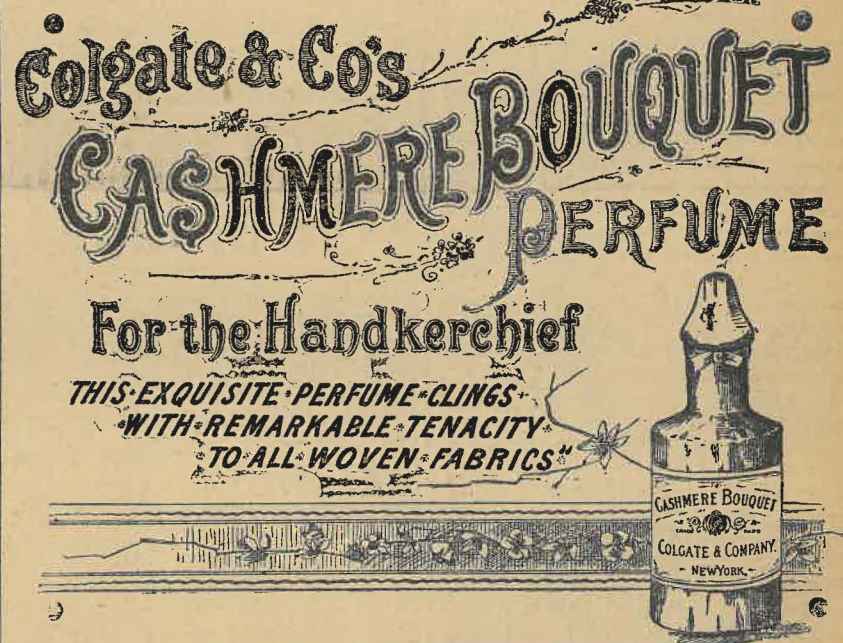 Colgate & Co's
CASHMERE BOUQUET
PERFUME
For the Handkerchief
THIS EXQUISITE PERFUME CLINGS
WITH REMARKABLE TENACITY
TO ALL WOVEN FABRICS"
CASHMERE BOUQUET
TRADE MARK
COLGATE & COMPANY.
NEW YORK